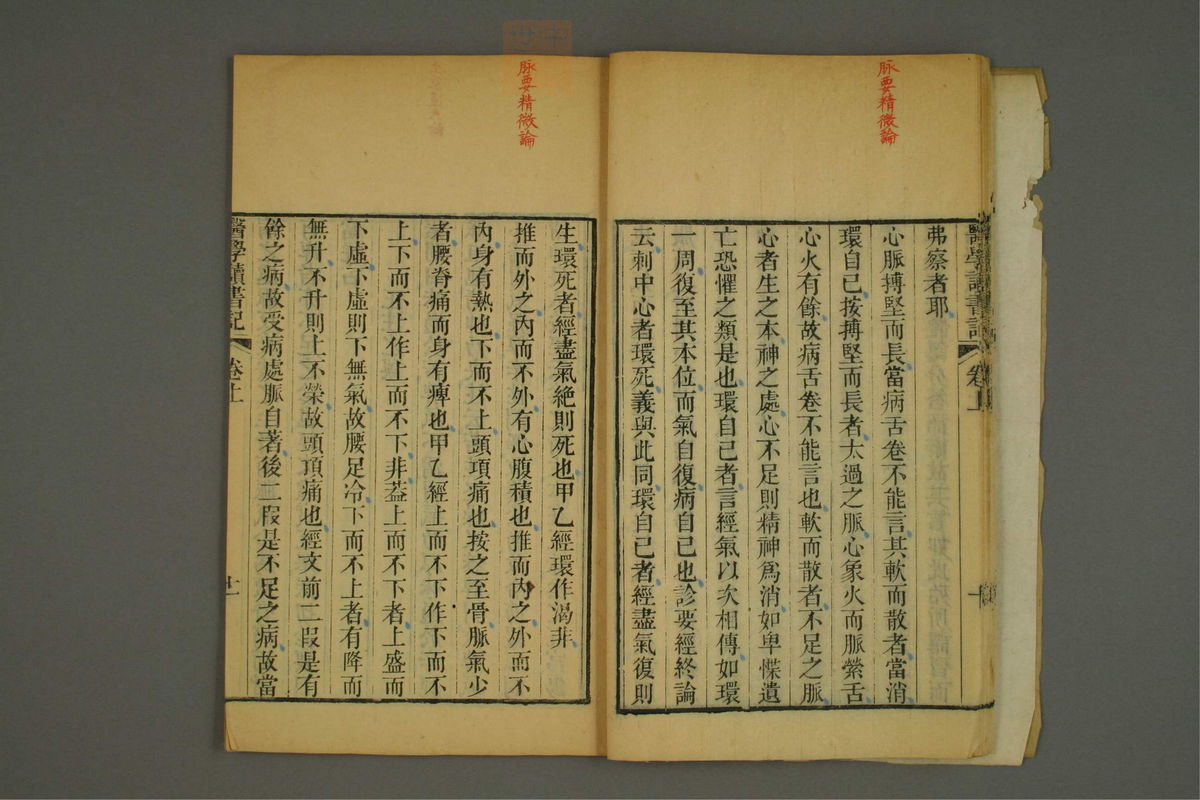 脉要精微論
醫學讀書記
卷上
弗察者耶
心脈搏堅而長當病舌卷不能言其軟而散者當消
環自己按搏堅而長者太過之脈心象火而脈縈舌
心火有餘故病舌卷不能言也軟而散者不足之脈
心者生之本神之處心不足則精神爲消如卑惵遺
亡恐懼之類是也環自己者言經氣以次相傳如環
一周復至其本位而氣自復病自己也診要經終論
云刺中心者環死義與此同環自己者經盡氣復則
脉要精微論
生環死者經盡氣絶則死也甲乙經環作渴非
推而外之內而不外有心腹積也推而內之外而不
內身有熱也下而不上頭項痛也按之至骨脈氣少
者腰脊痛而身有痺也甲乙經上而不下作下而不
上下而不上作上而不下非葢上而不下者上盛而
下虛下虛則下無氣故腰足冷下而不上者有降而
無升不升則上不榮故頭項痛也經文前二叚是有
餘之病故受病處脈自著後二叚是不足之病故當
醫學讀書記
卷上